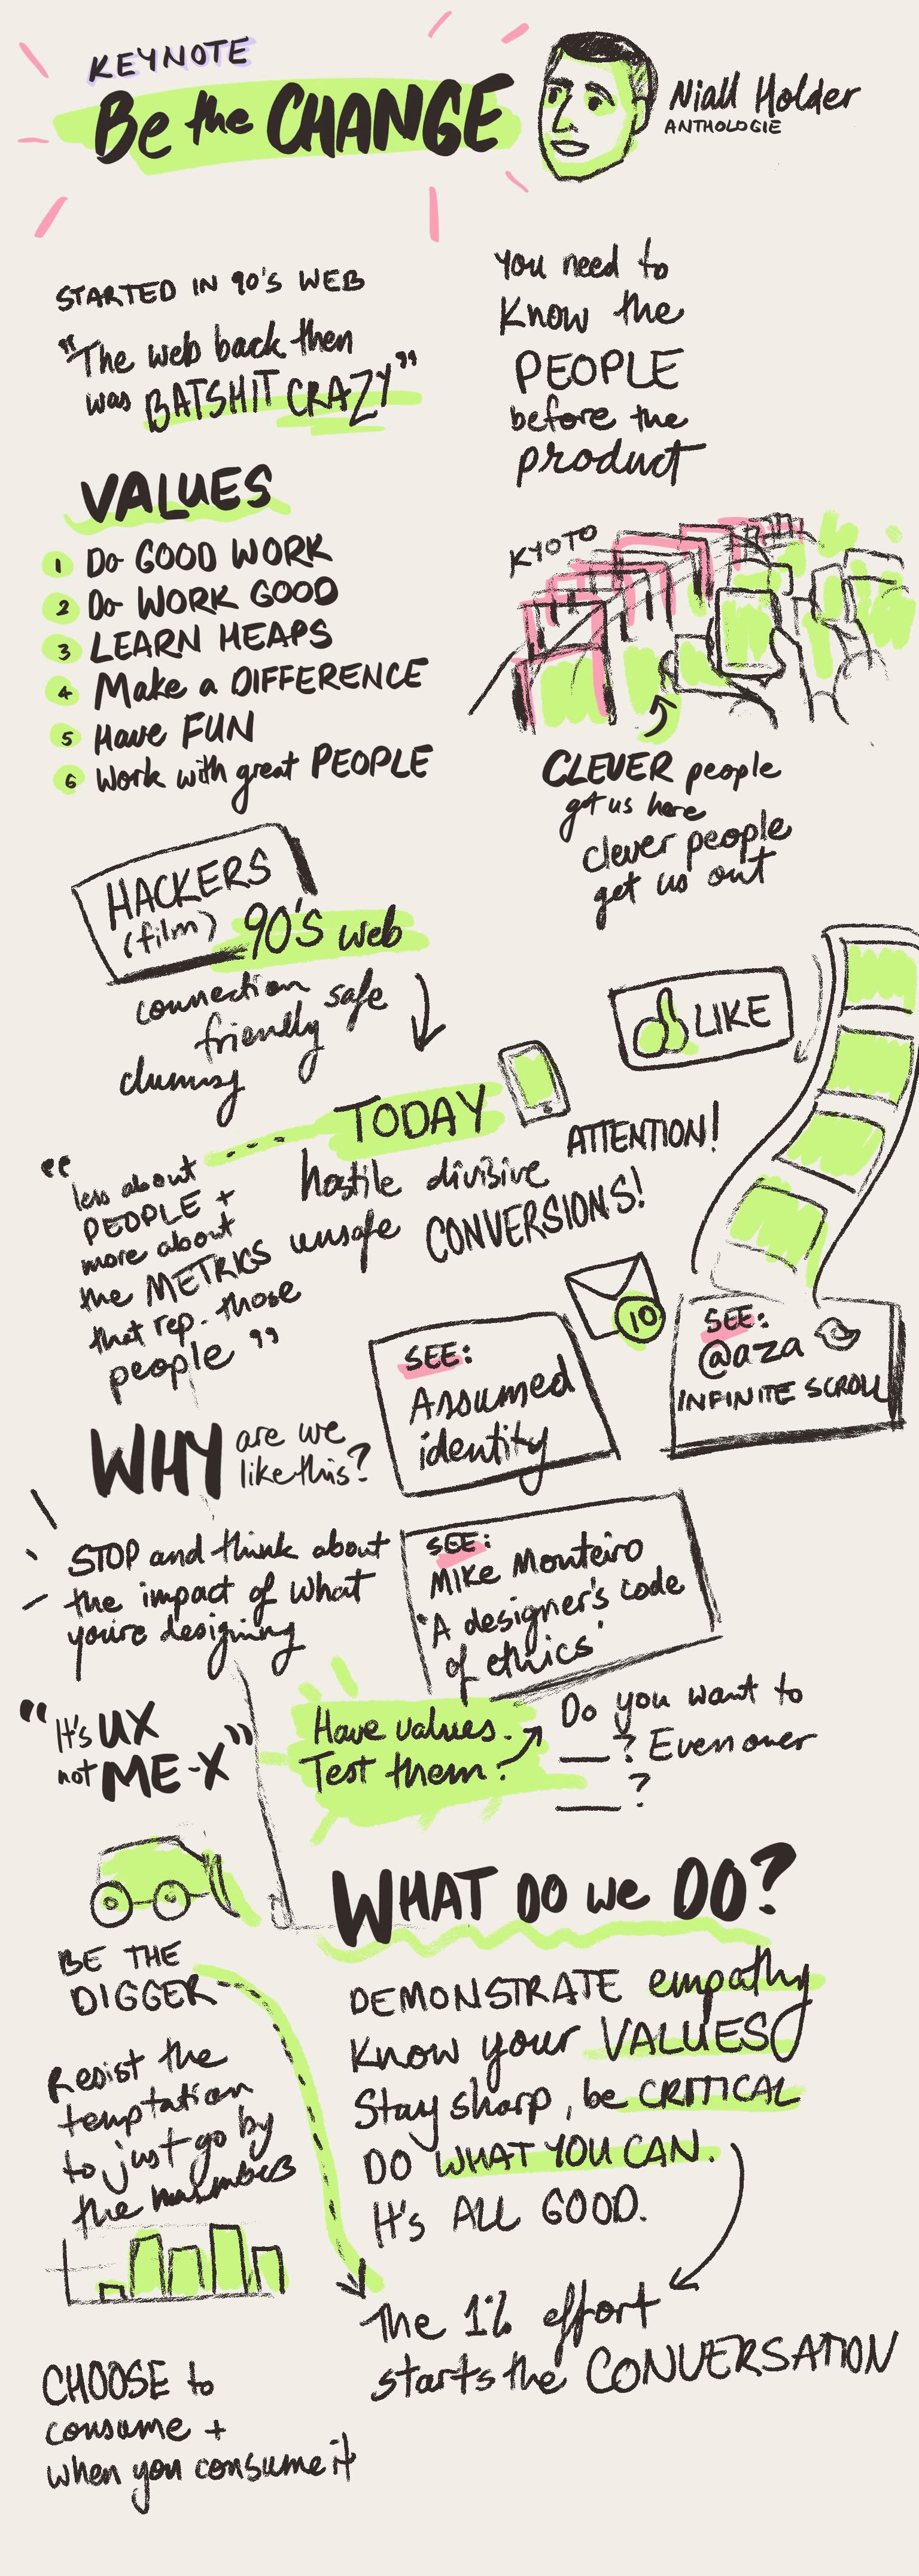 KEYNOTE
Be the CHANGE
Niall Holder
ANTHOLOGIE
STARTED IN 90'S WEB
"The web back then
was BATSHIT CRAZY"
VALUES
1 Do GOOD WORK
2 Do WORK GOOD
3 LEARN HEAPS
4 Make a DIFFERENCE
5 Have FUN
6 Work with great PEOPLE
you need to
Know the
PEOPLE
before the
product
KYOTO
CLEVER people
got us here
clever people
get us out
HACKERS
(film)
90'S web
connection safe
friendly
clumsy
LIKE
TODAY
hostile divisive
unsafe
ATTENTION!
CONVERSIONS!
"less about
PEOPLE +
more about
the METRICS
that rep. those
people"
10
SEE:
Assumed
identity
SEE:
@aza
INFINITE SCROLL
WHY are we
like this?
STOP and think about
the impact of what
you're designing
SEE:
Mike Monteiro
'A designer's code
of ethics'
"It's UX
not ME-X"
Have values.
Test them.
Do you want to
___? Even over
___?
BE THE
DIGGER
Resist the
temptation
to just go by
the numbers
WHAT DO we DO?
DEMONSTRATE empathy
Know your VALUES
Stay sharp, be CRITICAL
DO WHAT YOU CAN.
It's ALL GOOD.
The 1% effort
starts the CONVERSATION
CHOOSE to
consume +
when you consume it